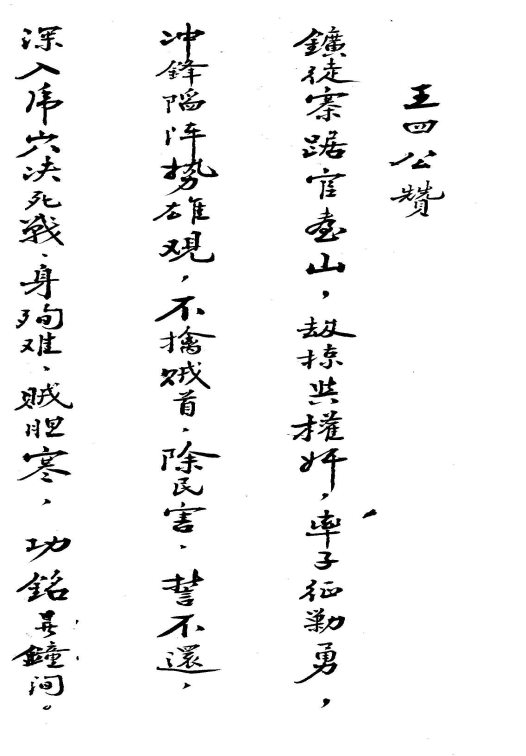 王四公贊
鑛徒寨踞官臺山，刼掠共權奸，率子征勦勇，
冲鋒陷阵势雄观，不擒贼首，除民害，誓不還，
深入虎穴决死戰，身殉难，贼胆寒，功銘鐘间。